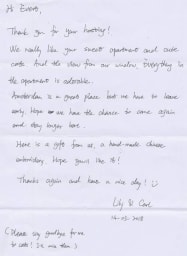 Hi Evert,
Thank you for your hosting!
We really like your sweet apartment and cute
cats. And the view from our window, Everything in
the apartment is adorable.
Amsterdam is a great place but we have to leave
early. Hope we have the chance to come again
and stay longer here.
Here is a gift from us, a hand-made chinese
embroidery. Hope you'll like it!
Thanks again and have a nice day!
Lily & Carl
2018
(Please say goodbye for me
to cats! I'll miss them.)